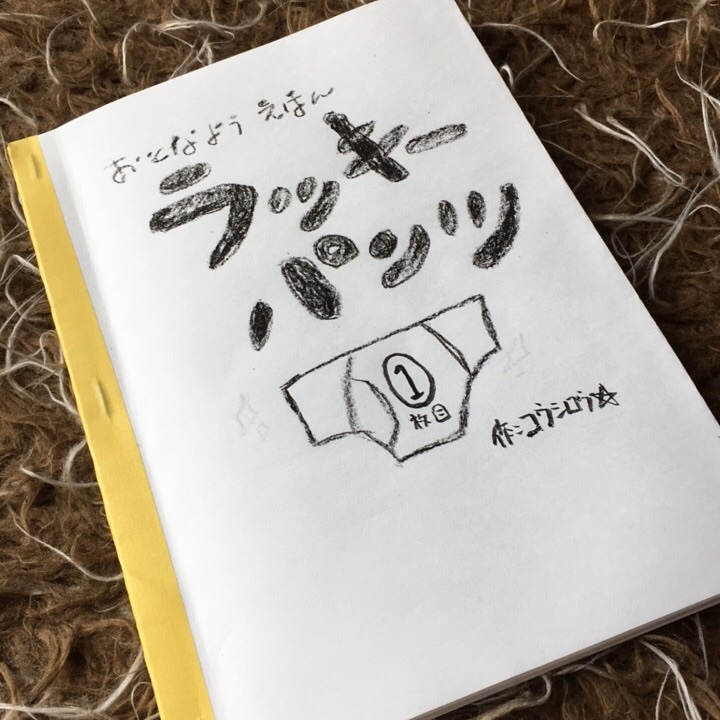 おとなよう えほん
ラッキー
パンツ
①
枚目
作:コウシロウ☆